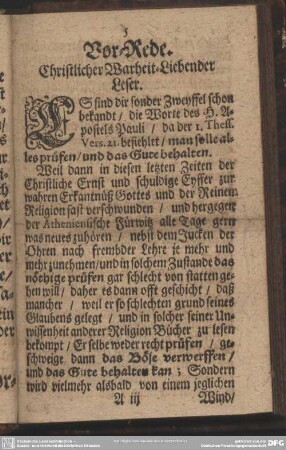 5
Vor-Rede.
Christlicher Warheit-Liebender
Leser.
ES sind dir sonder Zweyffel schon
bekandt / die Worte des H. A-
postels Pauli / da der 1. Thess.
Vers. 21. befiehlt / man solle al-
les prüfen / und das Gute behalten.
Weil dann in diesen letzten Zeiten der
Christliche Ernst und schuldige Eyffer zur
wahren Erkäntnüß Gottes und der Reinem
Religion fast verschwunden / und hergegen
der Atheniensische Fürwitz alle Tage gern
was neues zuhören / nebst dem Jucken der
Ohren nach frembder Lehre je mehr und
mehr zunehmen / und in solchem Zustande das
nöthige prüfen gar schlecht von statten ge-
hen will / daher es dann offt geschicht / daß
mancher / weil er so schlechten grund seines
Glaubens gelegt / und in solcher seiner Un-
wissenheit anderer Religion Bücher zu lesen
bekompt / Er selbe weder recht prüfen / ge-
schweige dann das Böse verwerffen /
und das Gute behalten kan; Sondern
wird vielmehr alsbald von einem jeglichen
A iij
Wind /